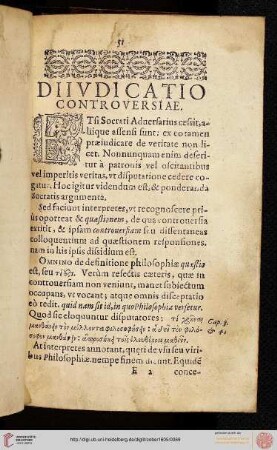 51
DIIVDICATIO
CONTROVERSIAE.
ETsi Socrati Aduersarius cessit, a-
liique assensi sunt: ex eo tamen
præiudicare de veritate non li
cet. Nonnunquam enim deseri-
tur à patronis vel oscitantibus
vel imperitis veritas, vt disputatione cedere co-
gatur. Hoc igitur videndum est, & ponderanda
Socratis argumenta.
Sed faciunt interpretes, vt recognoscere pri-
us oporteat & quæstionem, de qua controuersia
extitit, & ipsam controuersiam seu dissentaneas
colloquentium ad quæstionem responsiones.
nam in his ipsis dissidium est.
OMNINO de definitione philosophiæ quæstio
est, seu τί ἐστι. Verùm reiectis cæteris, quæ in
controuersiam non veniunt, manet subiectum
occupans, vt vocant; atque omnis disceptatio
eò redit. quid nam sit id, in quo Philosophia versetur.
Quod sic eloquuntur disputatores: τί χρὴ
μανθάνειν τὸν μέλλοντα φιλοσοφήσειν: Cap. 3.
& 4.
At interpretes annotant, quæri de vsu seu viri-
bus Philosophiæ. nempe finem dicunt. Equidē
E 2 conce-
http://digi.ub.uni-heidelberg.de/diglit/
UNIVERSITÄTS-
BIBLIOTHEK
HEIDELBERG